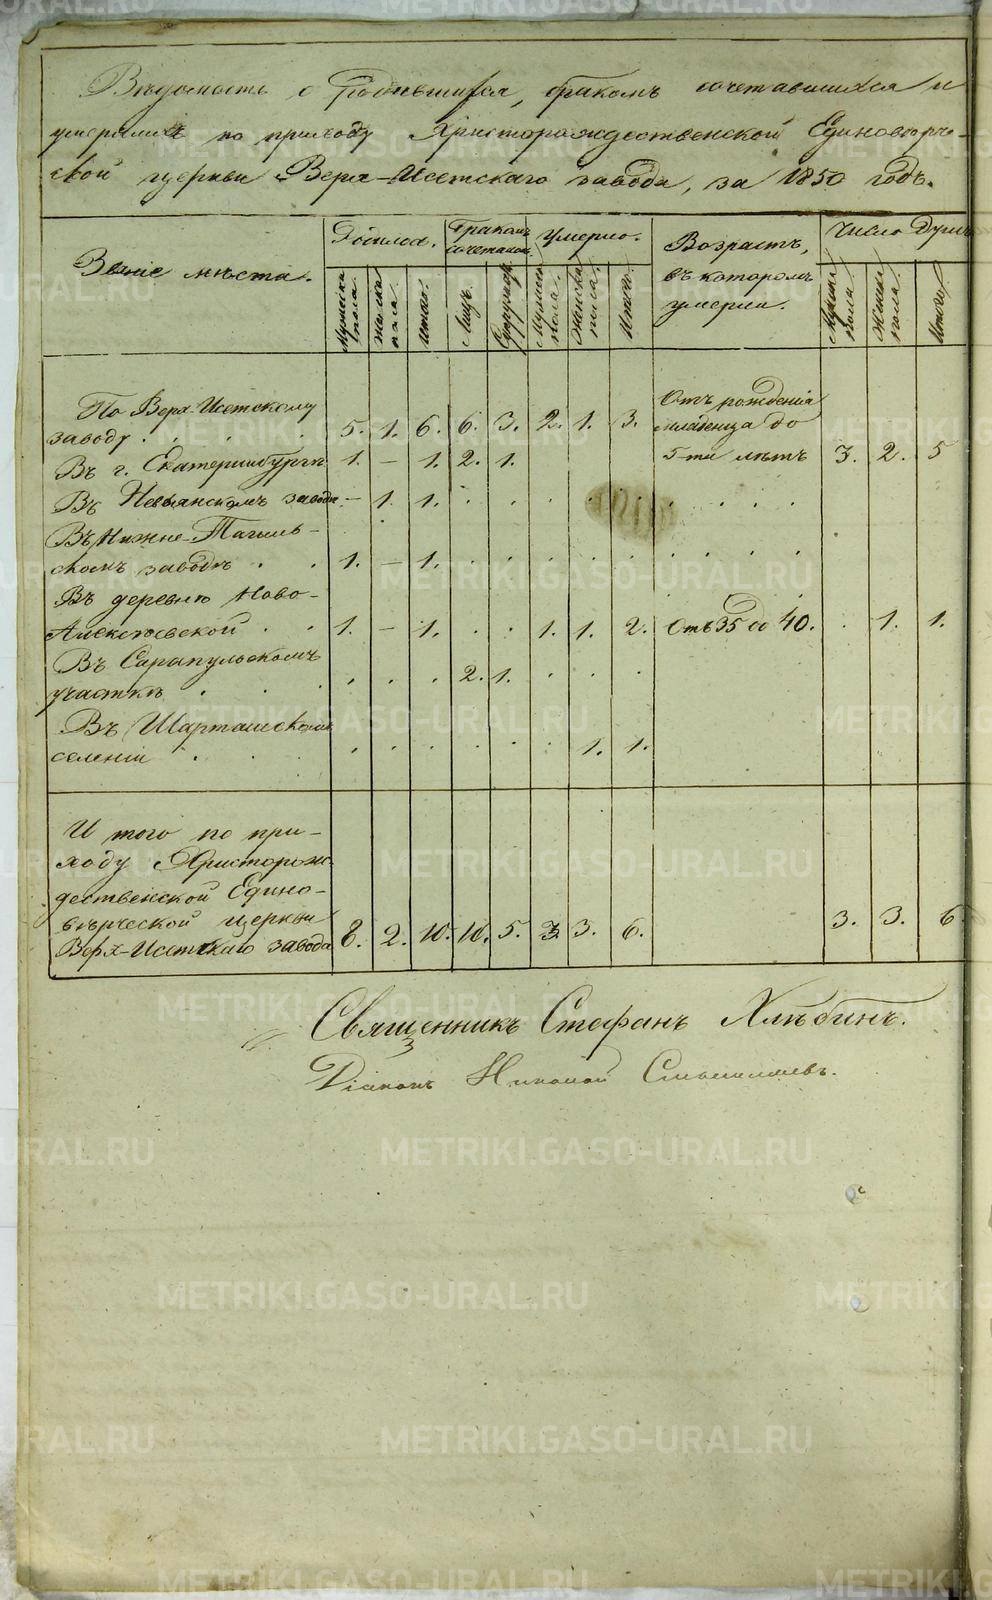 Вѣдомость о родившихся, бракомъ сочетавшихся и
умершихъ по приходу Христорождественской Единовѣрче-
ской церкви Верх-Исетскаго завода, за 1850 годъ.
Званіе мѣста. Родилось. Бракомъ сочетались. Умерло. Возрастъ, въ которомъ умерли. Число Душъ
Мужеска пола. Женска пола. Итого. Лицъ. Супружес. Мужеска пола. Женска пола. Итого. Мужеска пола. Женска пола. Итого.
По Верх-Исетскому Отъ рожденія
заводу . . . . 5. 1. 6. 6. 3. 2. 1. 3. младенца до
Въ г. Екатеринбургѣ 1. – 1. 2. 1. 5-ти лѣтъ 3. 2. 5
Въ Невьянскомъ заводѣ – 1. 1. . . . . . . . . .
Въ Нижне-Тагиль-
скомъ заводѣ . . 1. – 1. . . . . . . . . .
Въ деревнѣ Ново-
Алексѣевской . . 1. – 1. . . 1. 1. 2. Отъ 35 до 40. . 1. 1.
Въ Сарапульскомъ
участкѣ . . . . . . 2. 1. . . .
Въ Шарташскомъ
селеніи . . . . . . . . . 1. 1.
И того по при-
ходу Христорож-
дественской Едино-
вѣрческой церкви
Верх-Исетскаго завода 8. 2. 10. 10. 5. 3. 3. 6. 3. 3. 6.
Священникъ Стефанъ Хлѣбинъ.
Діаконъ Николай
METRIKI.GASO-URAL.RU